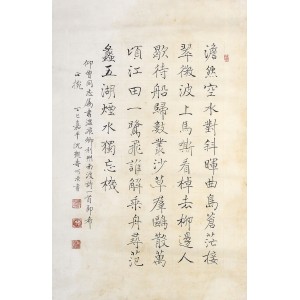 澹然空水對斜暉曲島蒼茫接
翠微波上馬嘶看棹去柳邊人
歇待船歸數叢沙草羣鷗散萬
頃江田一鷺飛誰解乘舟尋范
蠡五湖煙水獨忘機
仰曾同志屬書溫飛卿利州南渡詩一首即希
正腕